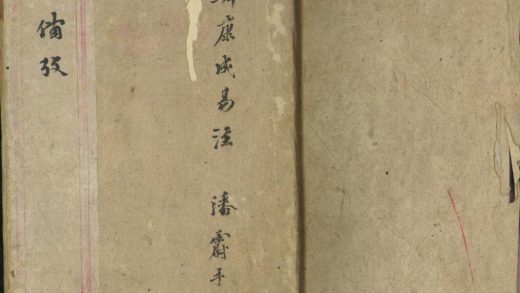 康成易注 潘霨手
備攷